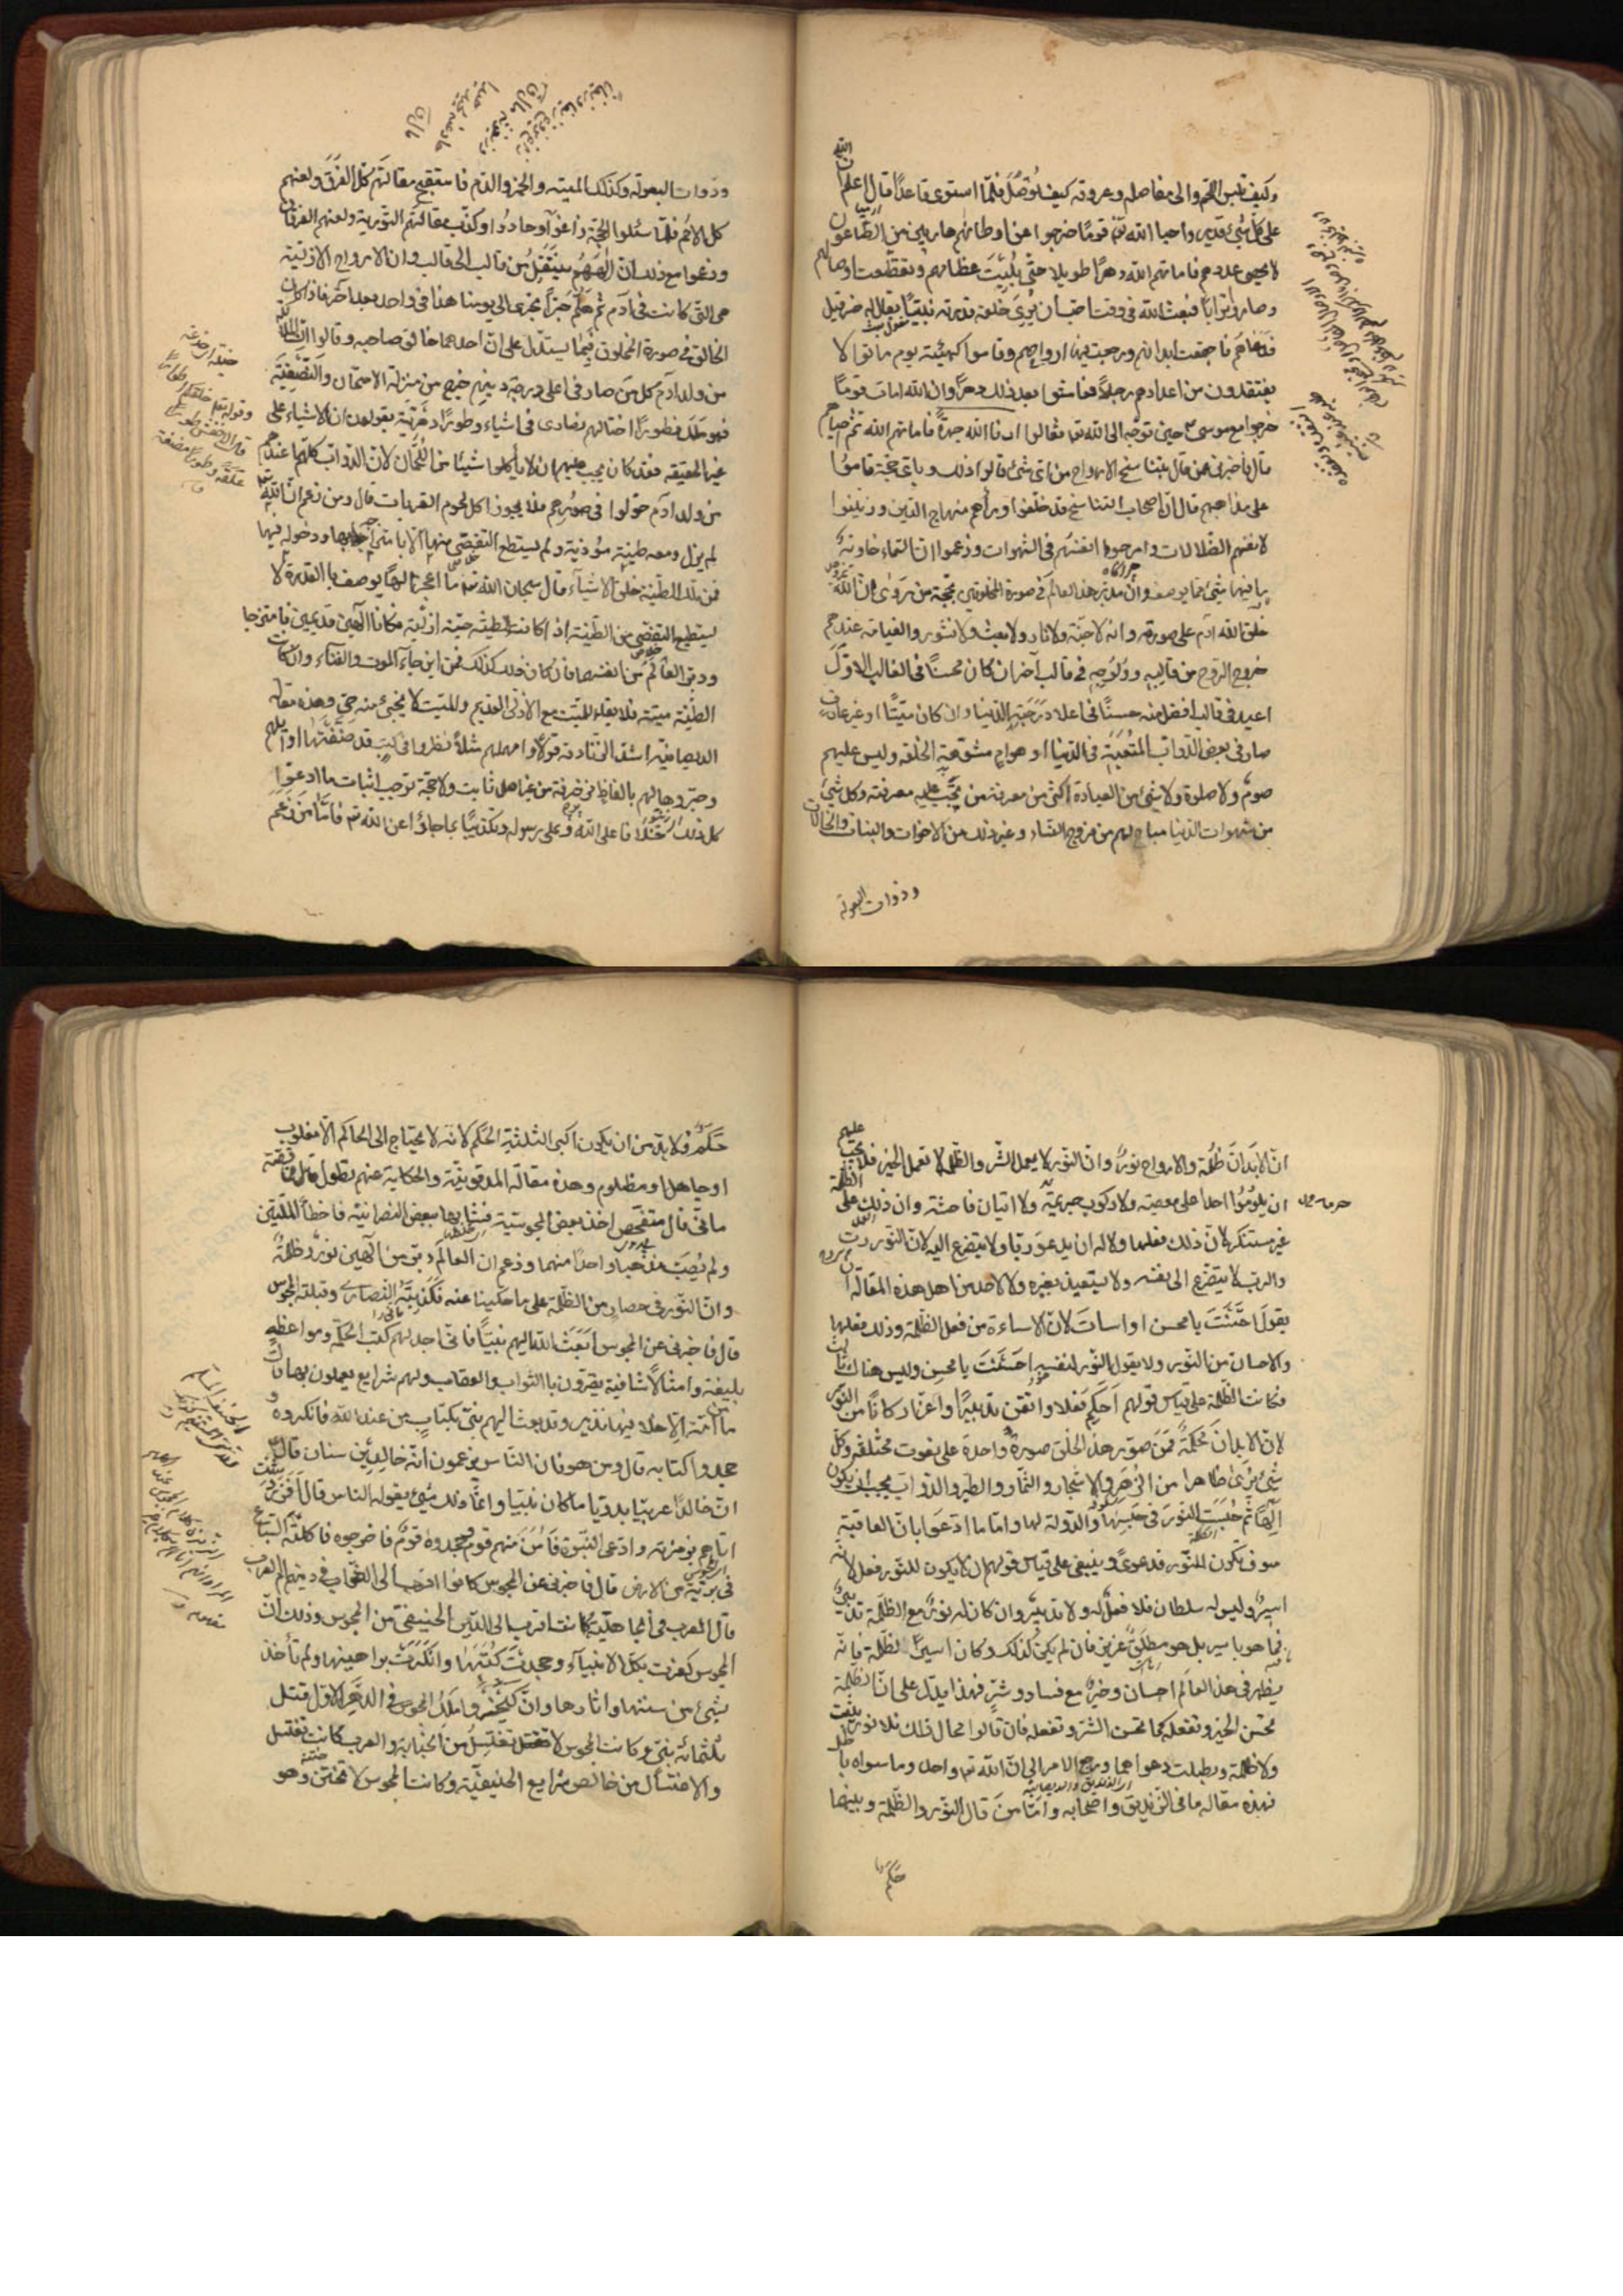 وكيف تلبس اللحم والى مفاصله وعروقه كيف توصل فلما استوى قاعدا قال اعلم ان الله
على كل شئ قدير واحيا الله قوما خرجوا عن اوطانهم هاربين من الطاعون
لا يحصى عددهم فاماتهم الله دهرا طويلا حتى بليت عظامهم وتقطعت اوصالهم
وصاروا ترابا فبعث الله فى وقت احب ان يرى خلقه قدرته نبيا يقال له حزقيل
فدعاهم فاجتمعت ابدانهم ورجعت فيها ارواحهم وقاموا كهيئة يوم ماتوا لا
يفتقدون من اعدادهم رجلا فعاشوا بعد ذلك دهرا وان الله امات قوما
خرجوا مع موسى حين توجه الى الله تعا فقالوا ارنا الله جهرة فاماتهم الله ثم احياهم
قال فاخبرنى عمن قال بتناسخ الارواح من اى شئ قالوا ذلك وباى حجة قاموا
على مذاهبهم قال ان اصحاب التناسخ قد خلفوا وراهم منهاج الدين وزينوا
لانفسهم الضلالات وامرجوا انفسهم فى الشهوات وزعموا ان السماء خاوية
ما فيها شئ مما يوصف وان مدبر هذا العالم فى صورة المخلوقين بحجة من روى ان الله
خلق الله ادم على صورته وانه لا جنة ولا نار ولا بعث ولا نشور والقيامة عندهم
خروج الروح من قالبه وولوجه فى قالب آخر ان كان محسنا فى القالب الاول
اعيد فى قالب افضل منه حسنا فى اعلا درجة الدنيا وان كان مسيئا او غير عارف
صار فى بعض الدواب المتعبة فى الدنيا او هوام مشوهة الخلقة وليس عليهم
صوم ولا صلوة ولا شئ من العبادة اكثر من معرفة من يجب عليه معرفته وكل شئ
من شهوات الدنيا مباح لهم من فروج النساء وغير ذلك من الاخوات والبنات والخالات
وذوات البعولة
وذوات البعولة وكذلك الميتة والخمر والدم فاستقبح مقالتهم كل الفرق ولعنهم
كل الامم فلما سئلوا الحجة زاغوا وحادوا وكذب مقالتهم التورية ولعنهم الفرقان
وزعموا مع ذلك ان الههم ينتقل من قالب الى قالب وان الارواح الازلية
هى التى كانت فى آدم ثم هلم جرا تجرى الى يومنا هذا فى واحد بعد آخر فاذا كان
الخالق فى صورة المخلوق فبما يستدل على ان احدهما خالق صاحبه وقالوا ان الملائكة
من ولد آدم كل من صار فى اعلى درجة دينهم خرج من منزلة الامتحان والتصفية
فهو ملك فطورا تخالهم نصارى فى اشياء وطورا دهرية يقولون ان الاشياء على
غير الحقيقة فقد كان يجب عليهم ان لا يأكلوا شيئا من اللحمان لان الدواب كلها عندهم
من ولد آدم حولوا فى صورهم فلا يجوز اكل لحوم القربات قال ومن زعم ان الله
لم يزل ومعه طينة مؤذية ولم يستطع التفصى منها الا بامتزاجه بها ودخوله فيها
فمن تلك الطينة خلق الاشياء قال سبحان الله تعا ما اعجز الها يوصف بالقدرة لا
يستطيع التفصى من الطينة اذا كانت الطينة حية ازلية فكانا الهين قديمين فامتزجا
ودبرا العالم من انفسهما فان كان ذلك كذلك فمن اين جاء الموت والفناء وان كانت
الطينة ميتة فلا بقاء للميت مع الازلى القديم والميت لا يجئ منه حى وهذه مقالة
الديصانية اشد الزنادقة قولا وامهلهم مثلا نظروا فى كتب قد صنفتها اوائلهم
وحبروها لهم بالفاظ مزخرفة من غير اصل ثابت ولا حجة توجب اثبات ما ادعوا
كل ذلك خلافا على الله وعلى رسوله وتكذيبا بما جاؤا عن الله تعا فاما من زعم
ان الابدان ظلمة والارواح نور وان النور لا يعمل الشر والظلمة لا تعمل الخير فلا يجب عليهم
ان يلوموا احدا على معصية ولا ركوب حرمة ولا اتيان فاحشة وان ذلك على الظلمة
غير مستنكر لان ذلك فعلها ولا له ان يدعو ربا ولا يتضرع اليه لان النور رب
والرب لا يتضرع الى نفسه ولا يستعيذ بغيره ولا لاحد من اهل هذه المقالة ان
يقول احسنت يا محسن او اسات لان الاساءة من فعل الظلمة وذلك فعلها
والاحسان من النور ولا يقول النور لنفسه احسنت يا محسن وليس هناك ثالث
فكانت الظلمة على قياس قولهم احكم فعلا واتقن تدبيرا واعز اركانا من النور
لان الابدان محكمة فمن صور هذا الخلق صورة واحدة على نعوت مختلفة وكل
شئ يرى ظاهرا من الزهر والاشجار والثمار والطير والدواب يجب ان يكون
الها ثم حبست النور فى حبسها والدولة لها واما ما ادعوا بان العاقبة
سوف تكون للنور فدعوى وينبغى على قياس قولهم ان لا يكون للنور فعل لانه
اسير وليس له سلطان فلا فعل له ولا تدبير وان كان له نور مع الظلمة تدبير
فما هو باسير بل هو مطلق عزيز فان لم يكن كذلك وكان اسير الظلمة فانه
يظهر فى هذا العالم احسان وخير مع فساد وشر فهذا يدل على ان الظلمة
تحسن الخير وتفعله كما تحسن الشر وتفعله فان قالوا محال ذلك فلا نور يثبت
ولا ظلمة وبطلت دعواهما ورجع الامر الى ان الله تعا واحد وما سواه باطل
فهذه مقالة مانى الزنديق واصحابه واما من قال النور والظلمة وبينهما
حكم
حكم فلا بد من ان يكون اكبر الثلثة الحكم لانه لا يحتاج الى الحاكم الا مغلوب
او جاهل او مظلوم وهذه مقالة المدقونية والحكاية عنهم تطول قال فما قصة
مانى قال متفحص اخذ بعض المجوسية فشابها ببعض النصرانية فاخطأ الملتين
ولم يصب مذهبا واحدا منهما وزعم ان العالم دبر من الهين نور وظلمة
وان النور فى حصار من الظلمة على ما حكينا عنه فكذبته النصارى وقبلته المجوس
قال فاخبرنى عن المجوس ابعث الله اليهم نبيا فانى اجد لهم كتب الحكمة ومواعظ
بليغة وامثالا شافية يقرون بالثواب والعقاب ولهم شرايع يعملون بها قال
ما من امة الا خلا فيها نذير وقد بعث اليهم نبى بكتاب من عند الله فانكروه و
جحدوا كتابه قال ومن هو فان الناس يزعمون انه خالد بن سنان قال
ان خالدا عربيا بدويا ما كان نبيا وانما ذلك شئ يقوله الناس قال افزردشت
اتاهم بزمزمة وادعى النبوة فآمن منهم قوم وجحدوه قوم فاخرجوه فاكلته السباع
فى برية من الارض قال فاخبرنى عن المجوس كانوا اقرب الى الصواب فى دينهم ام العرب
قال العرب فى الجاهلية كانت اقرب الى الدين الحنيفى من المجوس وذلك ان
المجوس كفرت بكل الانبياء وجحدت كتبها وانكرت براهينها ولم تأخذ
بشئ من سننها واثارها وان كيخسرو ملك المجوس فى الدهر الاول قتل
ثلثمائة نبى وكانت المجوس لا تغتسل من الجنابة والعرب كانت تغتسل
والاغتسال من خالص شرايع الحنيفية وكانت المجوس لا تختتن وهو